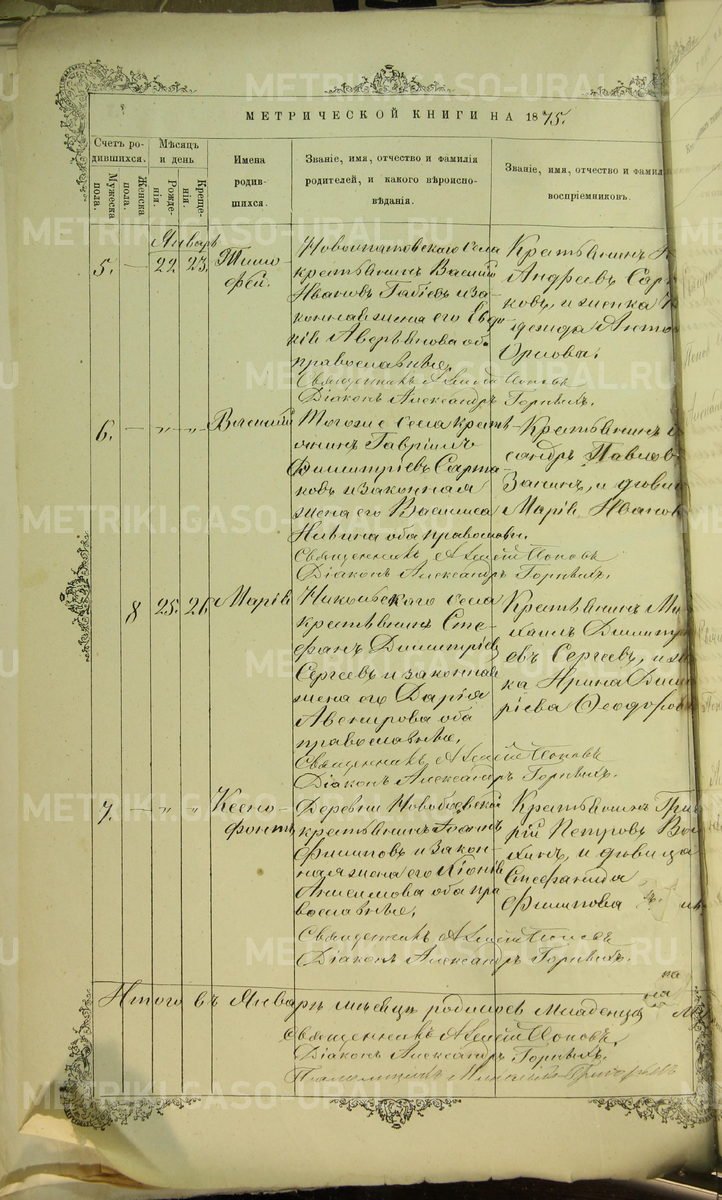 МЕТРИЧЕСКОЙ КНИГИ НА 1875.
Счетъ ро-
дившихся.
Мужеска
пола.
Женска
пола.
Мѣсяцъ
и день
Рожде-
нія.
Креще-
нія.
Имена
родив-
шихся.
Званіе, имя, отчество и фамилія
родителей, и какого вѣроиспо-
вѣданія.
Званіе, имя, отчество и фамил
воспріемниковъ.
Январь
5. — 22. 23.
Тимо-
фей.
Новоипатовскаго села
крестьянинъ Василій
Ивановъ Габіевъ и за-
конная жена его Евдо-
кія Аверьянова оба
православные.
Священникъ Алексій Поповъ
Діаконъ Александръ Горныхъ.
Крестьянинъ
Андреевъ Сарт
ковъ, и женка
дежда Анто
Орлова.
6. — „ „
Евгеній
Тогоже села крестья-
янинъ Гавріилъ
Димитріевъ Сарта-
ковъ и законная
жена его Васшиса
Нивина оба православн.
Священникъ Алексій Поповъ
Діаконъ Александръ Горныхъ.
Крестьянинъ
сандръ Павлов
Занинъ, и дѣвиц
Марія Иванов
8 25. 26.
Марія
Никольскаго села
крестьянинъ Сте-
фанъ Димитріевъ
Сергеевъ и законная
жена его Дарія
Авенирова оба
православные.
Священникъ Алексій Поповъ
Діаконъ Александръ Горныхъ.
Крестьянинъ Ми-
хаилъ Димитри
евъ Сергеевъ, и жен
ка Ирина Дими
ріева Ѳеодоров
7. — „ „
Ксено-
фонтъ
Деревни Новобоевской
крестьянинъ Іоаннъ
Филиповъ и закон-
ная жена его Хіонія
Анисимова оба пра-
вославные.
Священникъ Алексій Поповъ
Діаконъ Александръ Горныхъ.
Крестьянинъ Гри
рій Петровъ Ва
хинъ, и дѣвица
Стефанида
Филипова
Итого въ Январѣ мѣсяцѣ родилось младенцевъ
Священникъ Алексій Поповъ
Діаконъ Александръ Горныхъ.
METRIKI.GASO-URAL.RU